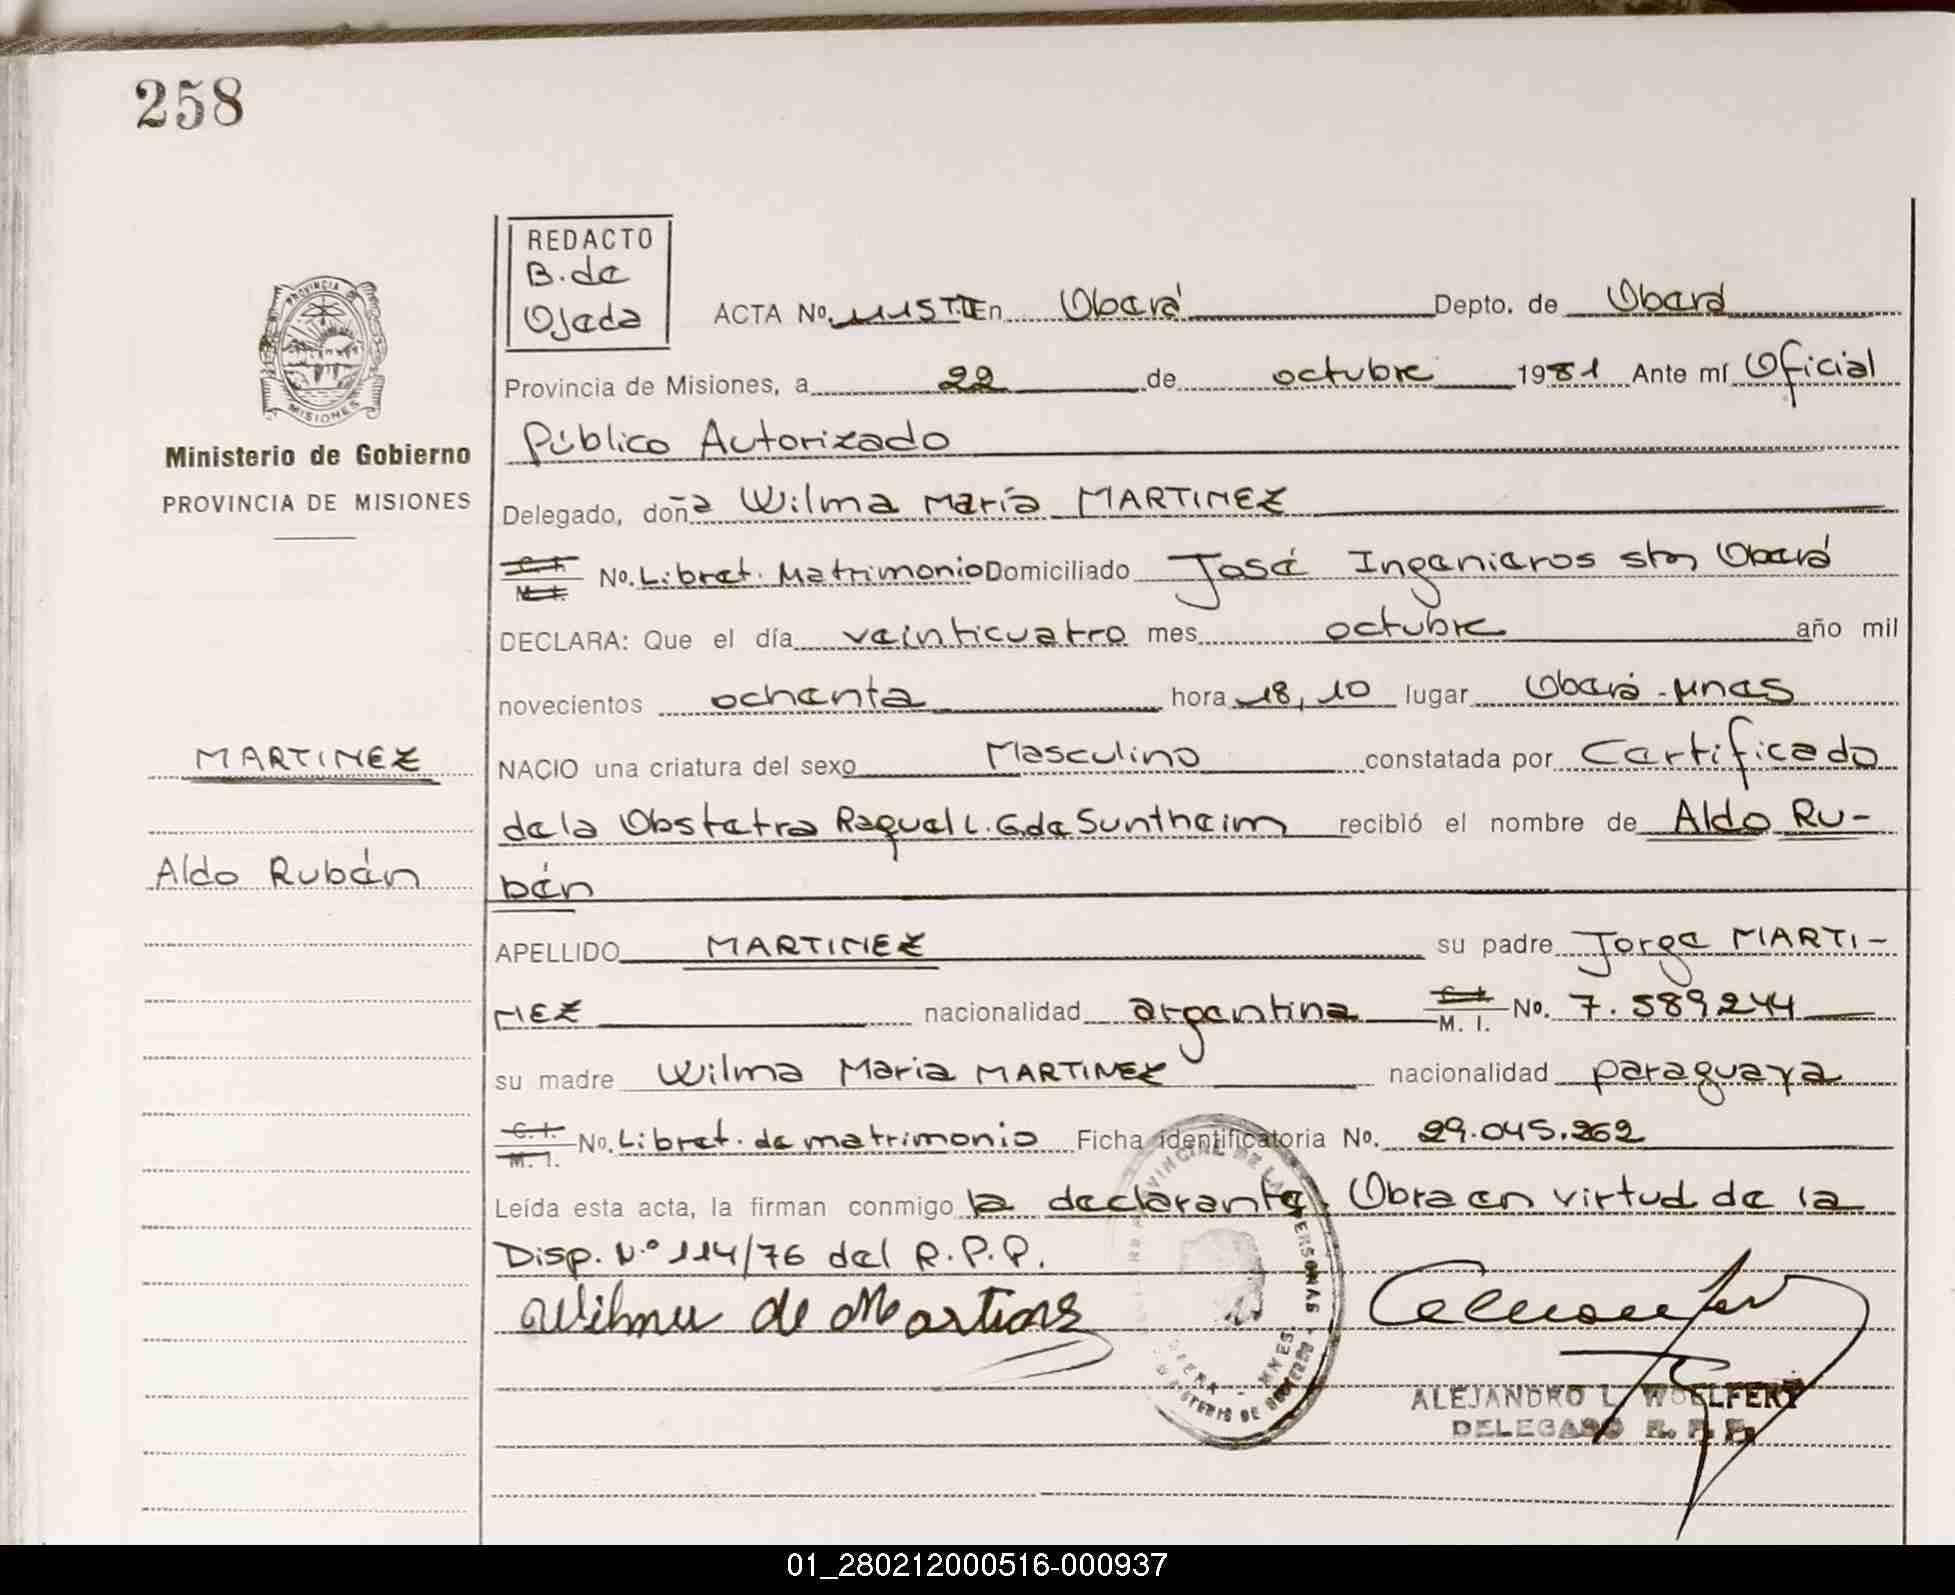 258
REDACTO
B. de
Ojeda
ACTA No. 115 T.II En Oberá Depto. de Oberá
Provincia de Misiones, a 22 de octubre 1981 Ante mí Oficial
Público Autorizado
Ministerio de Gobierno
PROVINCIA DE MISIONES
Delegado, doña Wilma María MARTINEZ
C. I. M. I. No. Libret. Matrimonio Domiciliado José Ingenieros s/n Oberá
DECLARA: Que el día veinticuatro mes octubre año mil
novecientos ochenta hora 18,10 lugar Oberá - Mnes
MARTINEZ
NACIO una criatura del sexo Masculino constatada por Certificado
de la Obstetra Raquel L. G. de Suntheim recibió el nombre de Aldo Ru-
Aldo Rubén
bén
APELLIDO MARTINEZ su padre Jorge MARTI-
NEZ nacionalidad argentina C. I. M. I. No. 7.589244
su madre Wilma Maria MARTINEZ nacionalidad paraguaya
C. I. M. I. No. Libret. de matrimonio Ficha identificatoria No. 29.045.262
Leída esta acta, la firman conmigo la declarante. Obra en virtud de la
Disp. N.º 114/76 del R.P.P.
Wilma de Martinez
ALEJANDRO L. WOELFERT
DELEGADO R. P. P.
01_280212000516-000937